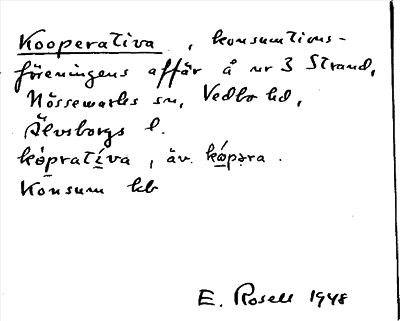 Kooperativa , konsumtions-
föreningens affär å nr 3 Strand,
Nössemarks sn, Vedbo hd,
Älvsborgs l.
kòpratíva , äv. kópəra .
Konsum kb
E. Rosell 1948